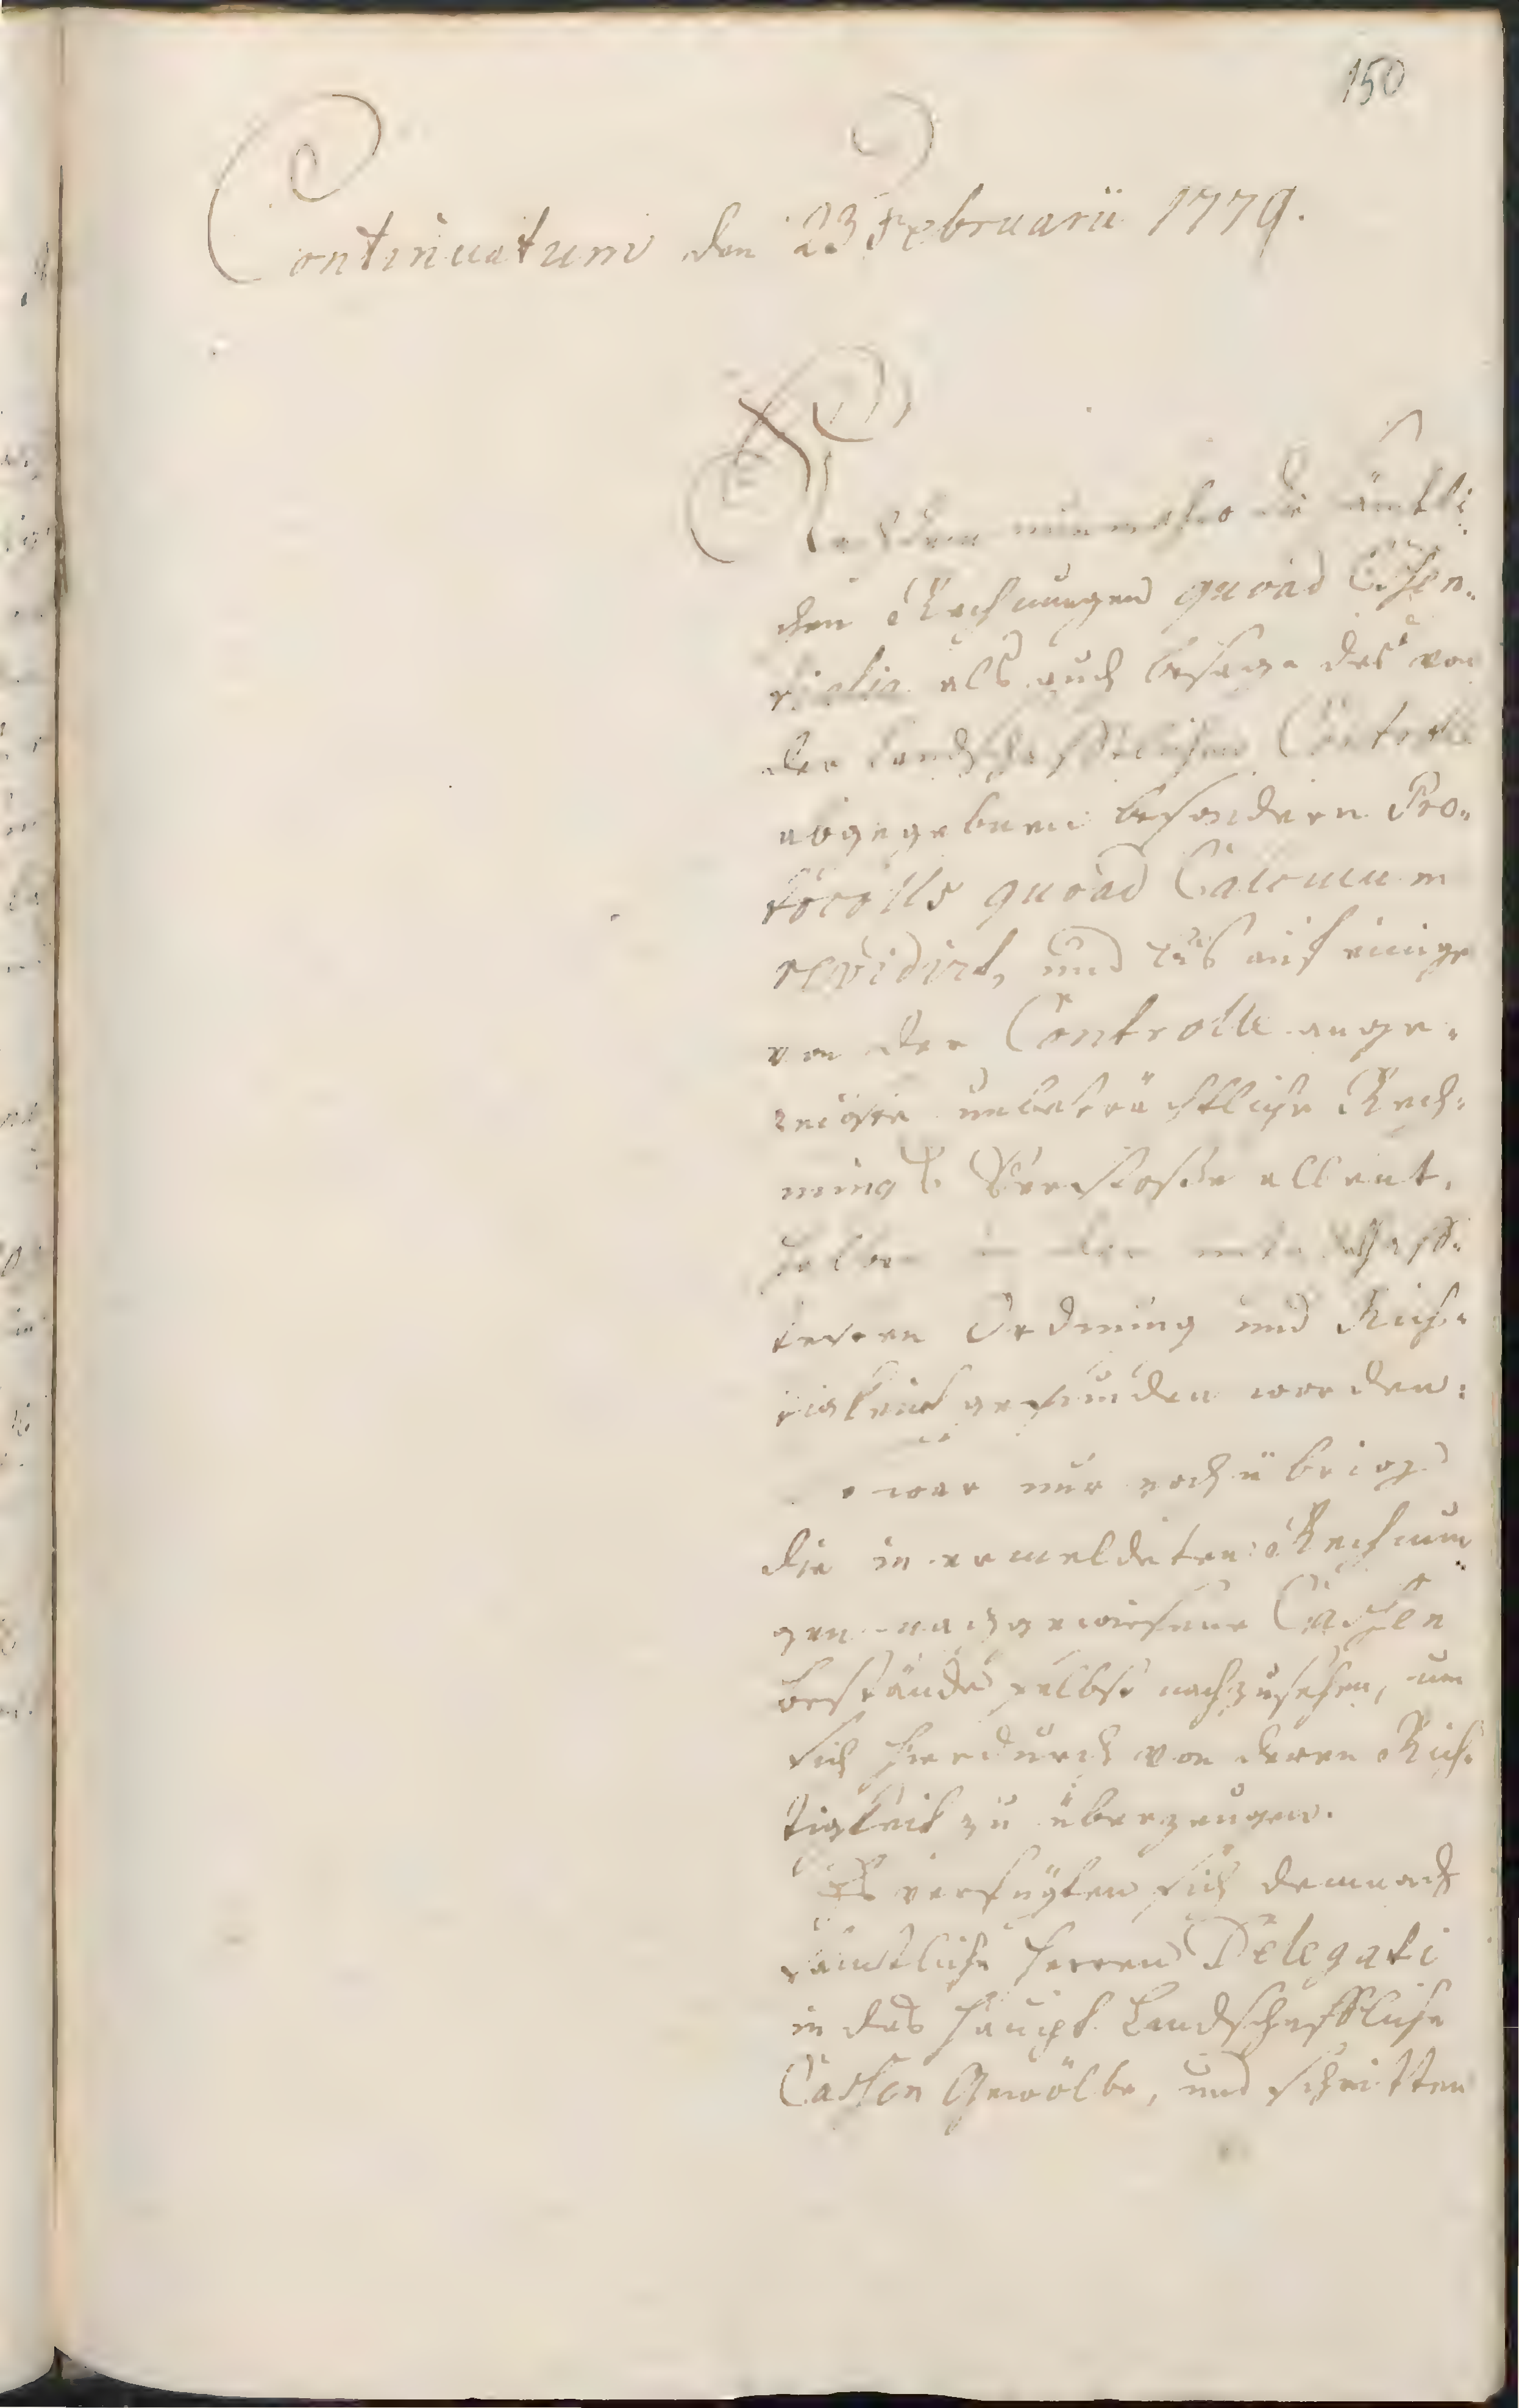 150
Continuatum den 23 Februarii 1779.
Nachdem nunmehro die sämtli
chen Rechnungen quoad Essen-
tialia als auch besage des von
der Landschafftlichen Controlle
abgegebenen besondern Pro-
tocolls quoad Calculum
revidirt, und bis auf einige
von der Controlle ange-
zeigte unbeträchtliche Rech-
nungs Verstoße allent-
halben in der
testen Ordnung und Rich-
tigkeit gefunden worden:
war nur noch übrig
die in vermeldeten Rechnun
gen nachgewiesene Cassen
bestände selbst nachzusehen, um
sich hierdurch von deren Rich-
tigkeit zu überzeugen.
Es verfügten sich demnach
sämtliche Herren Delegati
in das Haupt Landschafftliche
Cassen Gewölbe, und schritten